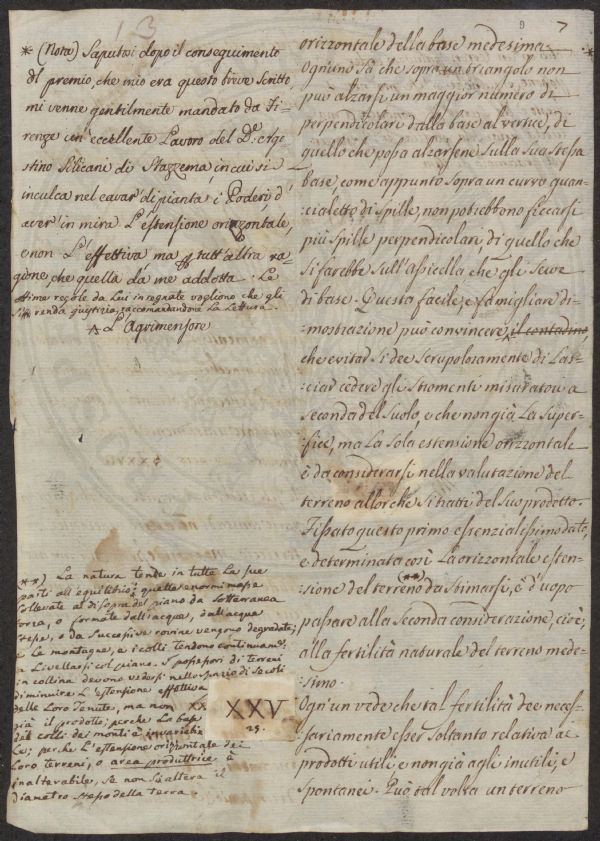 13
9 7
* (Nota) Saputosi dopo il conseguimento
del premio, che mio era questo breve scritto,
mi venne gentilmente mandato da Fi-
renze un'eccellente Lavoro del Dr. Ago
stino Silicani di Stazzema, in cui si
inculca nel cavar di pianta i Poderi d'
aver in mira L'estensione orizontale,
e non L'effettiva, ma per tutt'altra ra-
gione, che quella da me addotta. Le
ottime regole da Lui insegnate vogliono che gli
si renda giustizia, raccomandandone La Lettura.
^ L'Agrimensore
**) La natura tende in tutte Le sue
parti all'equilibrio; quelle enormi masse
sollevate al di sopra del piano da sotterranea
forza, o formate dall'acque, dall'acque
stesse, o da successive rovine vengono degradate,
e Le montagne, e i colli tendono continuamte.
a Livellarsi col piano. I possessori di terreni
in collina devono vedersi nello spazio di secoli
diminuire L'estensione effettiva
delle Loro Tenute, ma non
già il prodotto; perche La base
dei colli dei monti è invariabi-
le; perche L'estensione orizzontale dei
Loro terreni, o area produttrice è
inalterabile, se non si altera il
diametro stesso della terra.
XX
XXV
25.
orizzontale della base medesima.
Ogn'uno sà che sopra un triangolo non
può alzarsi un maggior numero di
perpendicolari dalla base al vertice, di
quello che possa alzarsene sulla sua stessa
base, come appunto sopra un curvo guan-
cialetto di spille, non potrebbono ficcarsi
più spille perpendicolari, di quello che
si farebbe sull'assicella che gli serve
di base. Questa facile, e famigliare di-
mostrazione può convincere ^ il contadino,
che evitar si dee scrupolosamente di Las-
ciar cedere gli stromenti misuratori a
seconda del suolo, e che non già La super-
ficie, ma La sola estensione orizzontale
è da considerarsi nella valutazione del
terreno allorche si tratti del suo prodotto.
Fissato questo primo essenzialissimo dato,
e determinata così La orizzontale esten-
sione del terreno (**) da stimarsi, è d'uopo
passare alla seconda considerazione, cioè,
alla fertilità naturale del terreno mede-
simo.
Ogn'un vede che tal fertilità dee neces-
sariamente esser soltanto relativa ai
prodotti utili e non già agli inutili, e
spontanei. Può tal volta un terreno